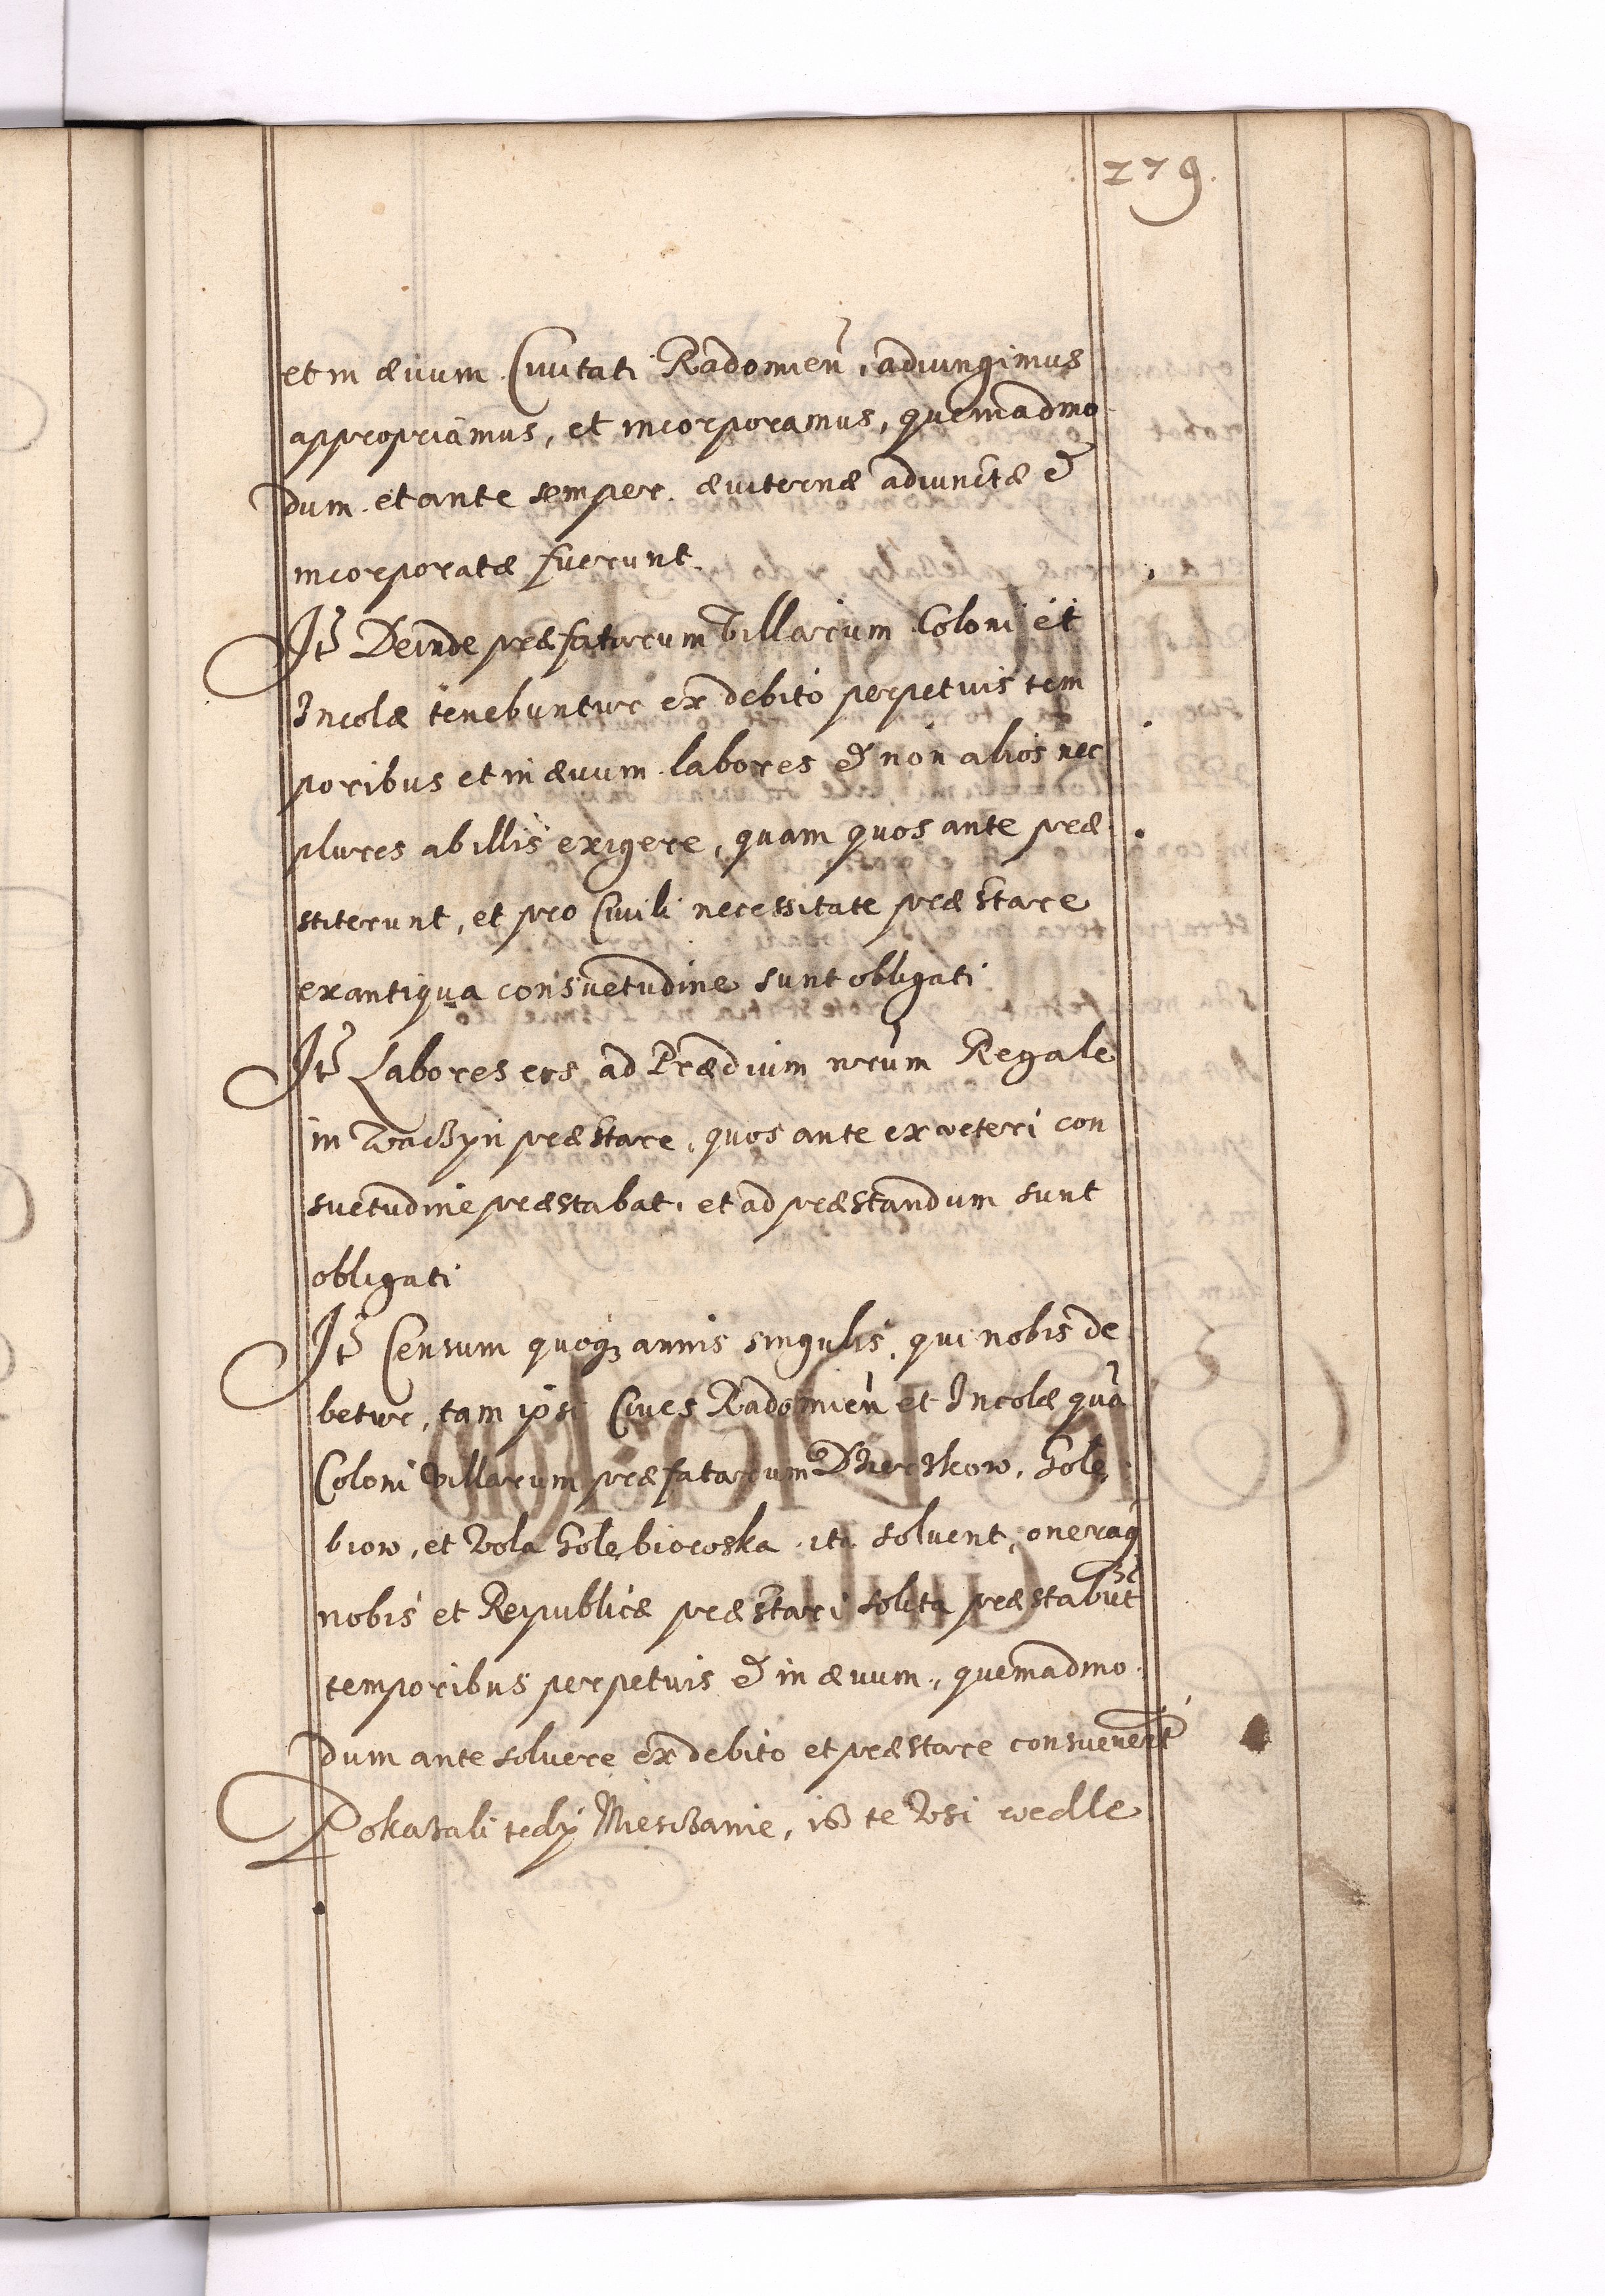 279.
et in ævum Civitati Radomień, adiungimus
appropriamus, et incorporamus, quemadmo
dum et ante semper æviternæ adiunctæ &
incorporatæ fuerunt.
Itẽ Deinde præfatarum Villarum Coloni et
Incolæ tenebuntur ex debito perpetuis tem
poribus et in ævum labores & non alios nec
plures ab illis exigere, quam quos ante præ
stiterunt, et pro Civili necessitate præstare
ex antiqua consvetudine sunt obligati
Itẽ Labores eos ad Prædium nrũm Regale
in præstare, quos ante ex veteri con
svetudine præstabat, et ad præstandum sunt
obligati
Itẽ Censum quoqꝫ annis singulis, qui nobis de
betur, tam ipsi Cives Radomień et Incolæ quã
Coloni Villarum præfatarum Dzierzkow, Gole
biow, et Vola Golebiowska ita solvent, oneraqꝫ
nobis et Reipublicæ præstari solita præstabũt
temporibus perpetuis & in ævum, quemadmo
dum ante solvere ex debito et præstare consvever̃t
Pokazali tedy Miesczanie, isz te Wsi wedle